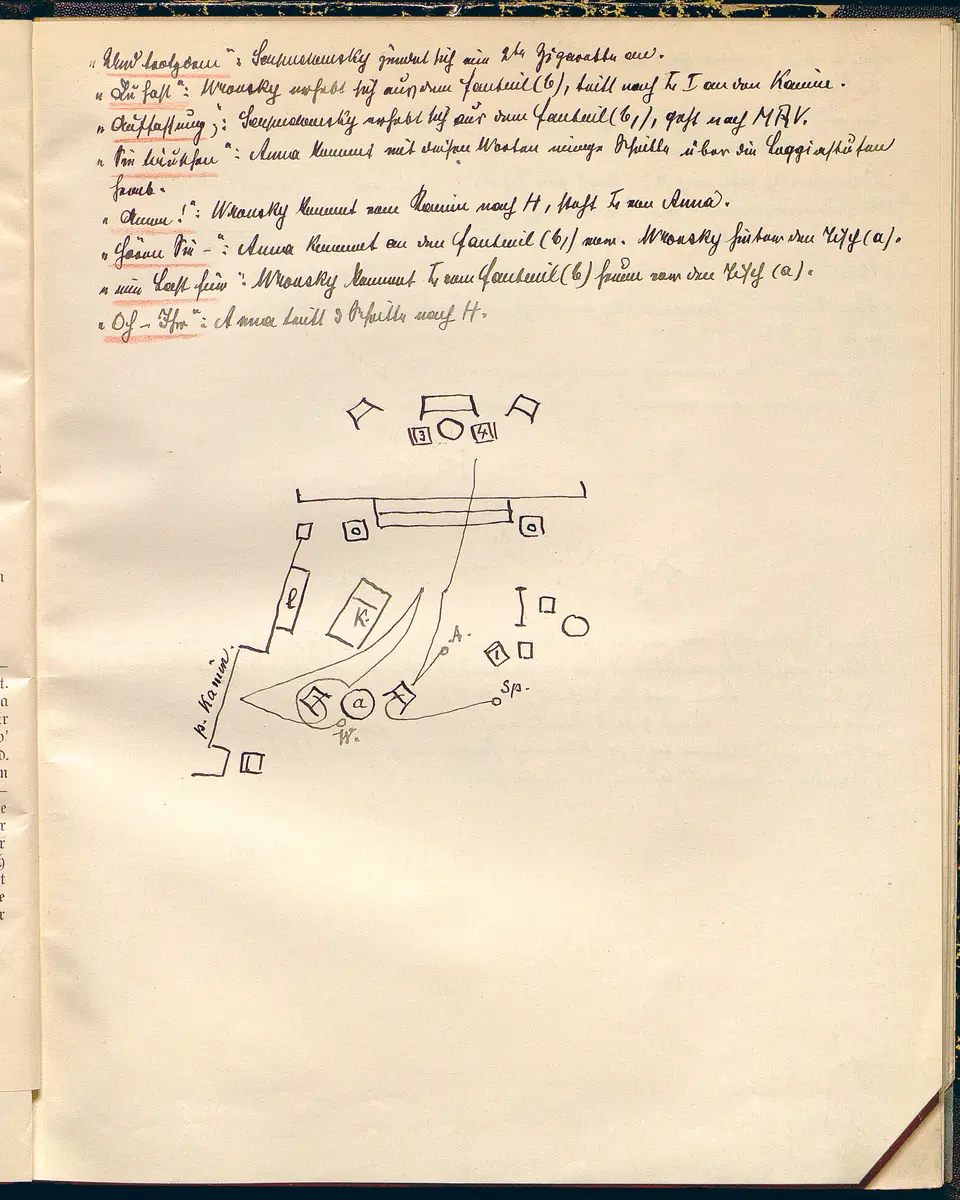 „Und trotzdem“: Serpuchowsky zündet sich eine 2te Zigarette an.
„Du hast“: Wronsky erhebt sich aus dem Fauteuil (b), tritt nach L I an den Kamin.
„Auffassung“: Serpuchowsky erhebt sich aus dem Fauteuil (b,), geht nach M R V.
„Sie täuschen“: Anna kommt mit diesen Worten einige Schritte über die Loggiastufen
herab.
„Anna!“: Wronsky kommt vom Kamin nach H, steht L von Anna.
„Hören Sie –“: Anna kommt an den Fauteuil (b,) vor. Wronsky hinter den Tisch (a).
„eine Last für“: Wronsky kommt L vom Fauteuil (b) herum vor den Tisch (a).
„Oh – Ihr“: Anna tritt 3 Schritte nach H.
3
4
o
o
l
K.
A.
1
p. Kamin.
a
Sp.
W.